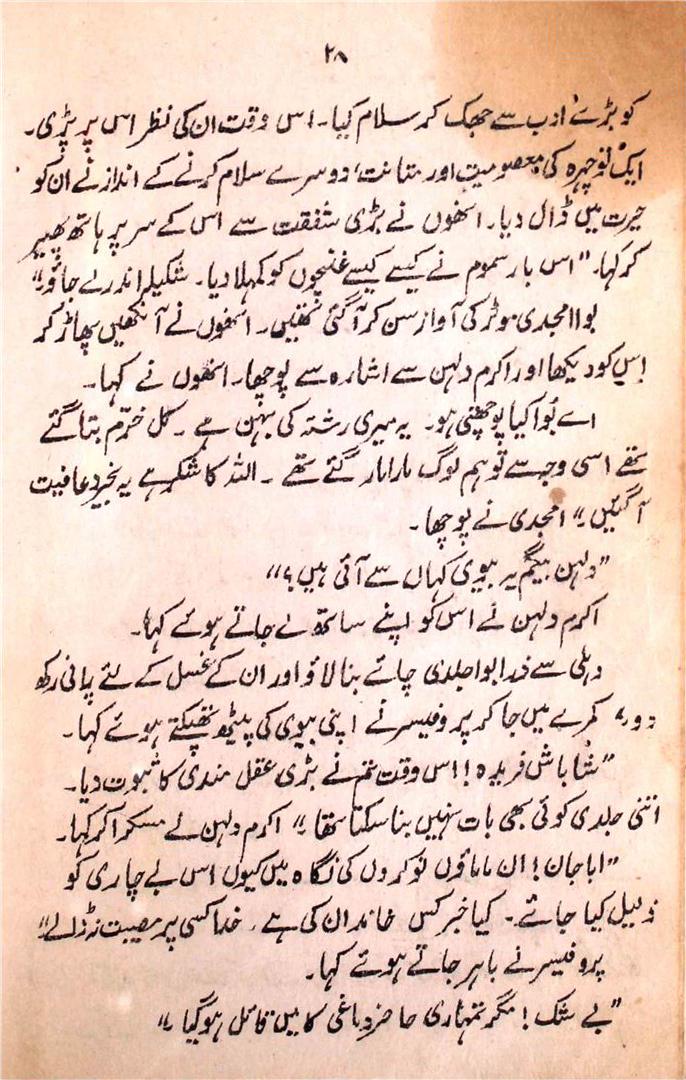 ۲۸
کو بڑے ادب سے جھک کر سلام کیا۔ اس وقت ان کی نظر اس پر پڑی۔
ایک نوچہرہ کی معصومیت اور متانت، دوسرے سلام کرنے کے انداز نے ان کو
حیرت میں ڈال دیا۔ انھوں نے بڑی شفقت سے اس کے سر پر ہاتھ پھیر
کر کہا۔ "اس بار سموم نے کیسے کیسے غنچوں کو کمہلا دیا۔ شکیلہ اندر لے جاؤ۔"
بوا امجدی موٹر کی آواز سن کر آ گئی تھیں۔ انھوں نے آنکھیں پھاڑ کر
اس کو دیکھا اور اکرم دلہن سے اشارہ سے پوچھا۔ انھوں نے کہا۔
اے بُوا کیا پوچھتی ہو۔ یہ میری رشتہ کی بہن ہے۔ کل خرّم بتا گئے
تھے اسی وجہ سے تو ہم لوگ مارا مار گئے تھے۔ اللہ کا شکر ہے یہ بخیر و عافیت
آ گئیں۔" امجدی نے پوچھا۔
"دلہن بیگم یہ بیوی کہاں سے آئی ہیں؟"
اکرم دلہن نے اس کو اپنے ساتھ لے جاتے ہوئے کہا۔
دہلی سے ذرا بوا جلدی چائے بنا لاؤ اور ان کے غسل کے لئے پانی رکھ
دو۔" کمرے میں جا کر پروفیسر نے اپنی بیوی کی پیٹھ تھپکتے ہوئے کہا۔
"شاباش فریدہ!! اس وقت تم نے بڑی عقل مندی کا ثبوت دیا۔
اتنی جلدی کوئی بھی بات نہیں بنا سکتا تھا۔" اکرم دلہن نے مسکرا کر کہا۔
"ابا جان! ان ماماؤں نوکروں کی نگاہ میں کیوں اس بے چاری کو
ذلیل کیا جائے۔ کیا خبر کس خاندان کی ہے۔ خدا کسی پر مصیبت نہ ڈالے"
پروفیسر نے باہر جاتے ہوئے کہا۔
"بے شک! مگر تمہاری حاضر دماغی کا میں قائل ہو گیا۔"